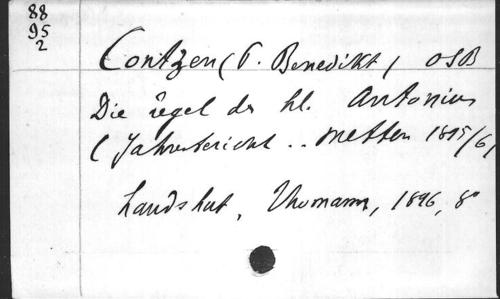 88
95
2
Contzen (P. Benedikt) OSB
Die Regel des hl. Antonius
(Jahresbericht .. Metten 1895/6)
Landshut, Thomann, 1896, 8°